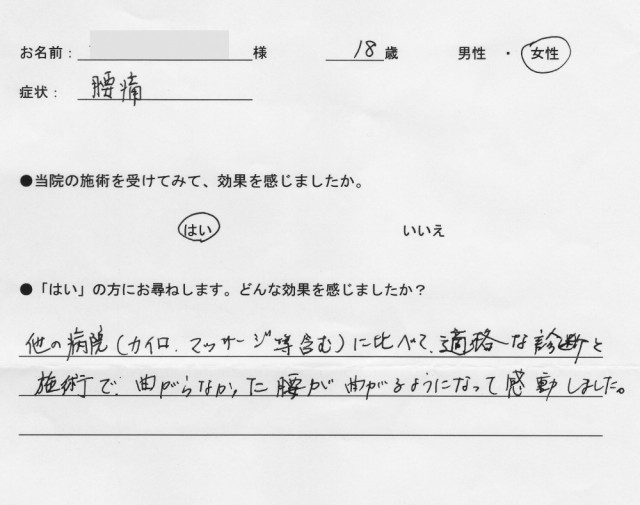 お名前： 様 18歳 男性 ・ 女性
症状： 腰痛
●当院の施術を受けてみて、効果を感じましたか。
はい いいえ
●「はい」の方にお尋ねします。どんな効果を感じましたか？
他の病院(カイロ、マッサージ等含む)に比べて、適格な診断と
施術で、曲がらなかった腰が曲がるようになって感動しました。